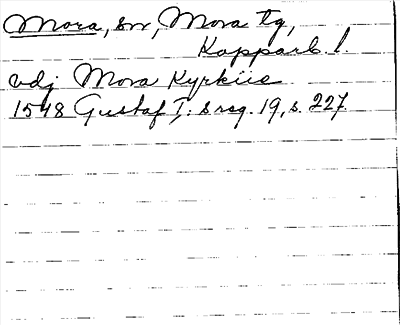 Mora, sn, Mora tg,
Kopparb. l.
vdj Mora Kyrkiie
1548 Gustaf I: s reg. 19, s. 227